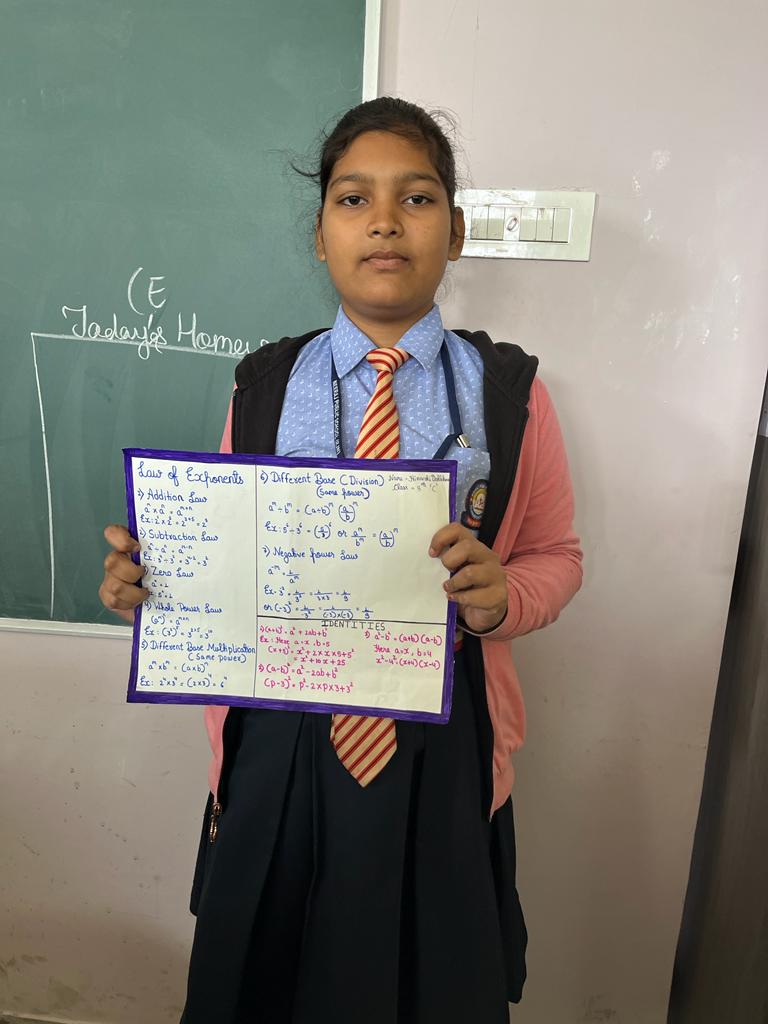 (E
Today's Home
Law of Exponents
1) Addition Law
aᵐ x aⁿ = aᵐ⁺ⁿ
Ex: 2² x 2⁵ = 2²⁺⁵ = 2⁷
2) Subtraction Law
aᵐ ÷ aⁿ = aᵐ⁻ⁿ
3) Zero Law
a⁰ = 1
Ex: 5⁰ = 1
4) Whole Power Law
(aᵐ)ⁿ = aᵐˣⁿ
Ex: (3²)⁵ = 3²ˣ⁵ = 3¹⁰
5) Different Base Multiplication
(Same power)
aᵐ x bᵐ = (a x b)ᵐ
Ex: 2⁴ x 3⁴ = (2 x 3)⁴ = 6⁴
6) Different Base (Division)
(Same power)
aᵐ ÷ bᵐ = (a ÷ b)ᵐ (a/b)ᵐ
Ex: 5⁶ ÷ 3⁶ = (5/3)⁶ or aᵐ/bᵐ = (a/b)ᵐ
7) Negative power Law
a⁻ᵐ = 1/aᵐ
or (-3)⁻² = 1/(-3)² = 1/(-3)x(-3) = 1/9
Name -
Class - 8ᵗʰ 'C'
IDENTITIES
1) (a+b)² = a² + 2ab + b²
Ex: Here a = x, b = 5
(x+5)² = x² + 2 x X x 5 + 5²
= x² + 10x + 25
2) (a-b)² = a² - 2ab + b²
(P-3)² = P² - 2 x P x 3 + 3²
3) a² - b² = (a+b) (a-b)
Here a = x, b = 4
x² - 4² = (x+4) (x-4)